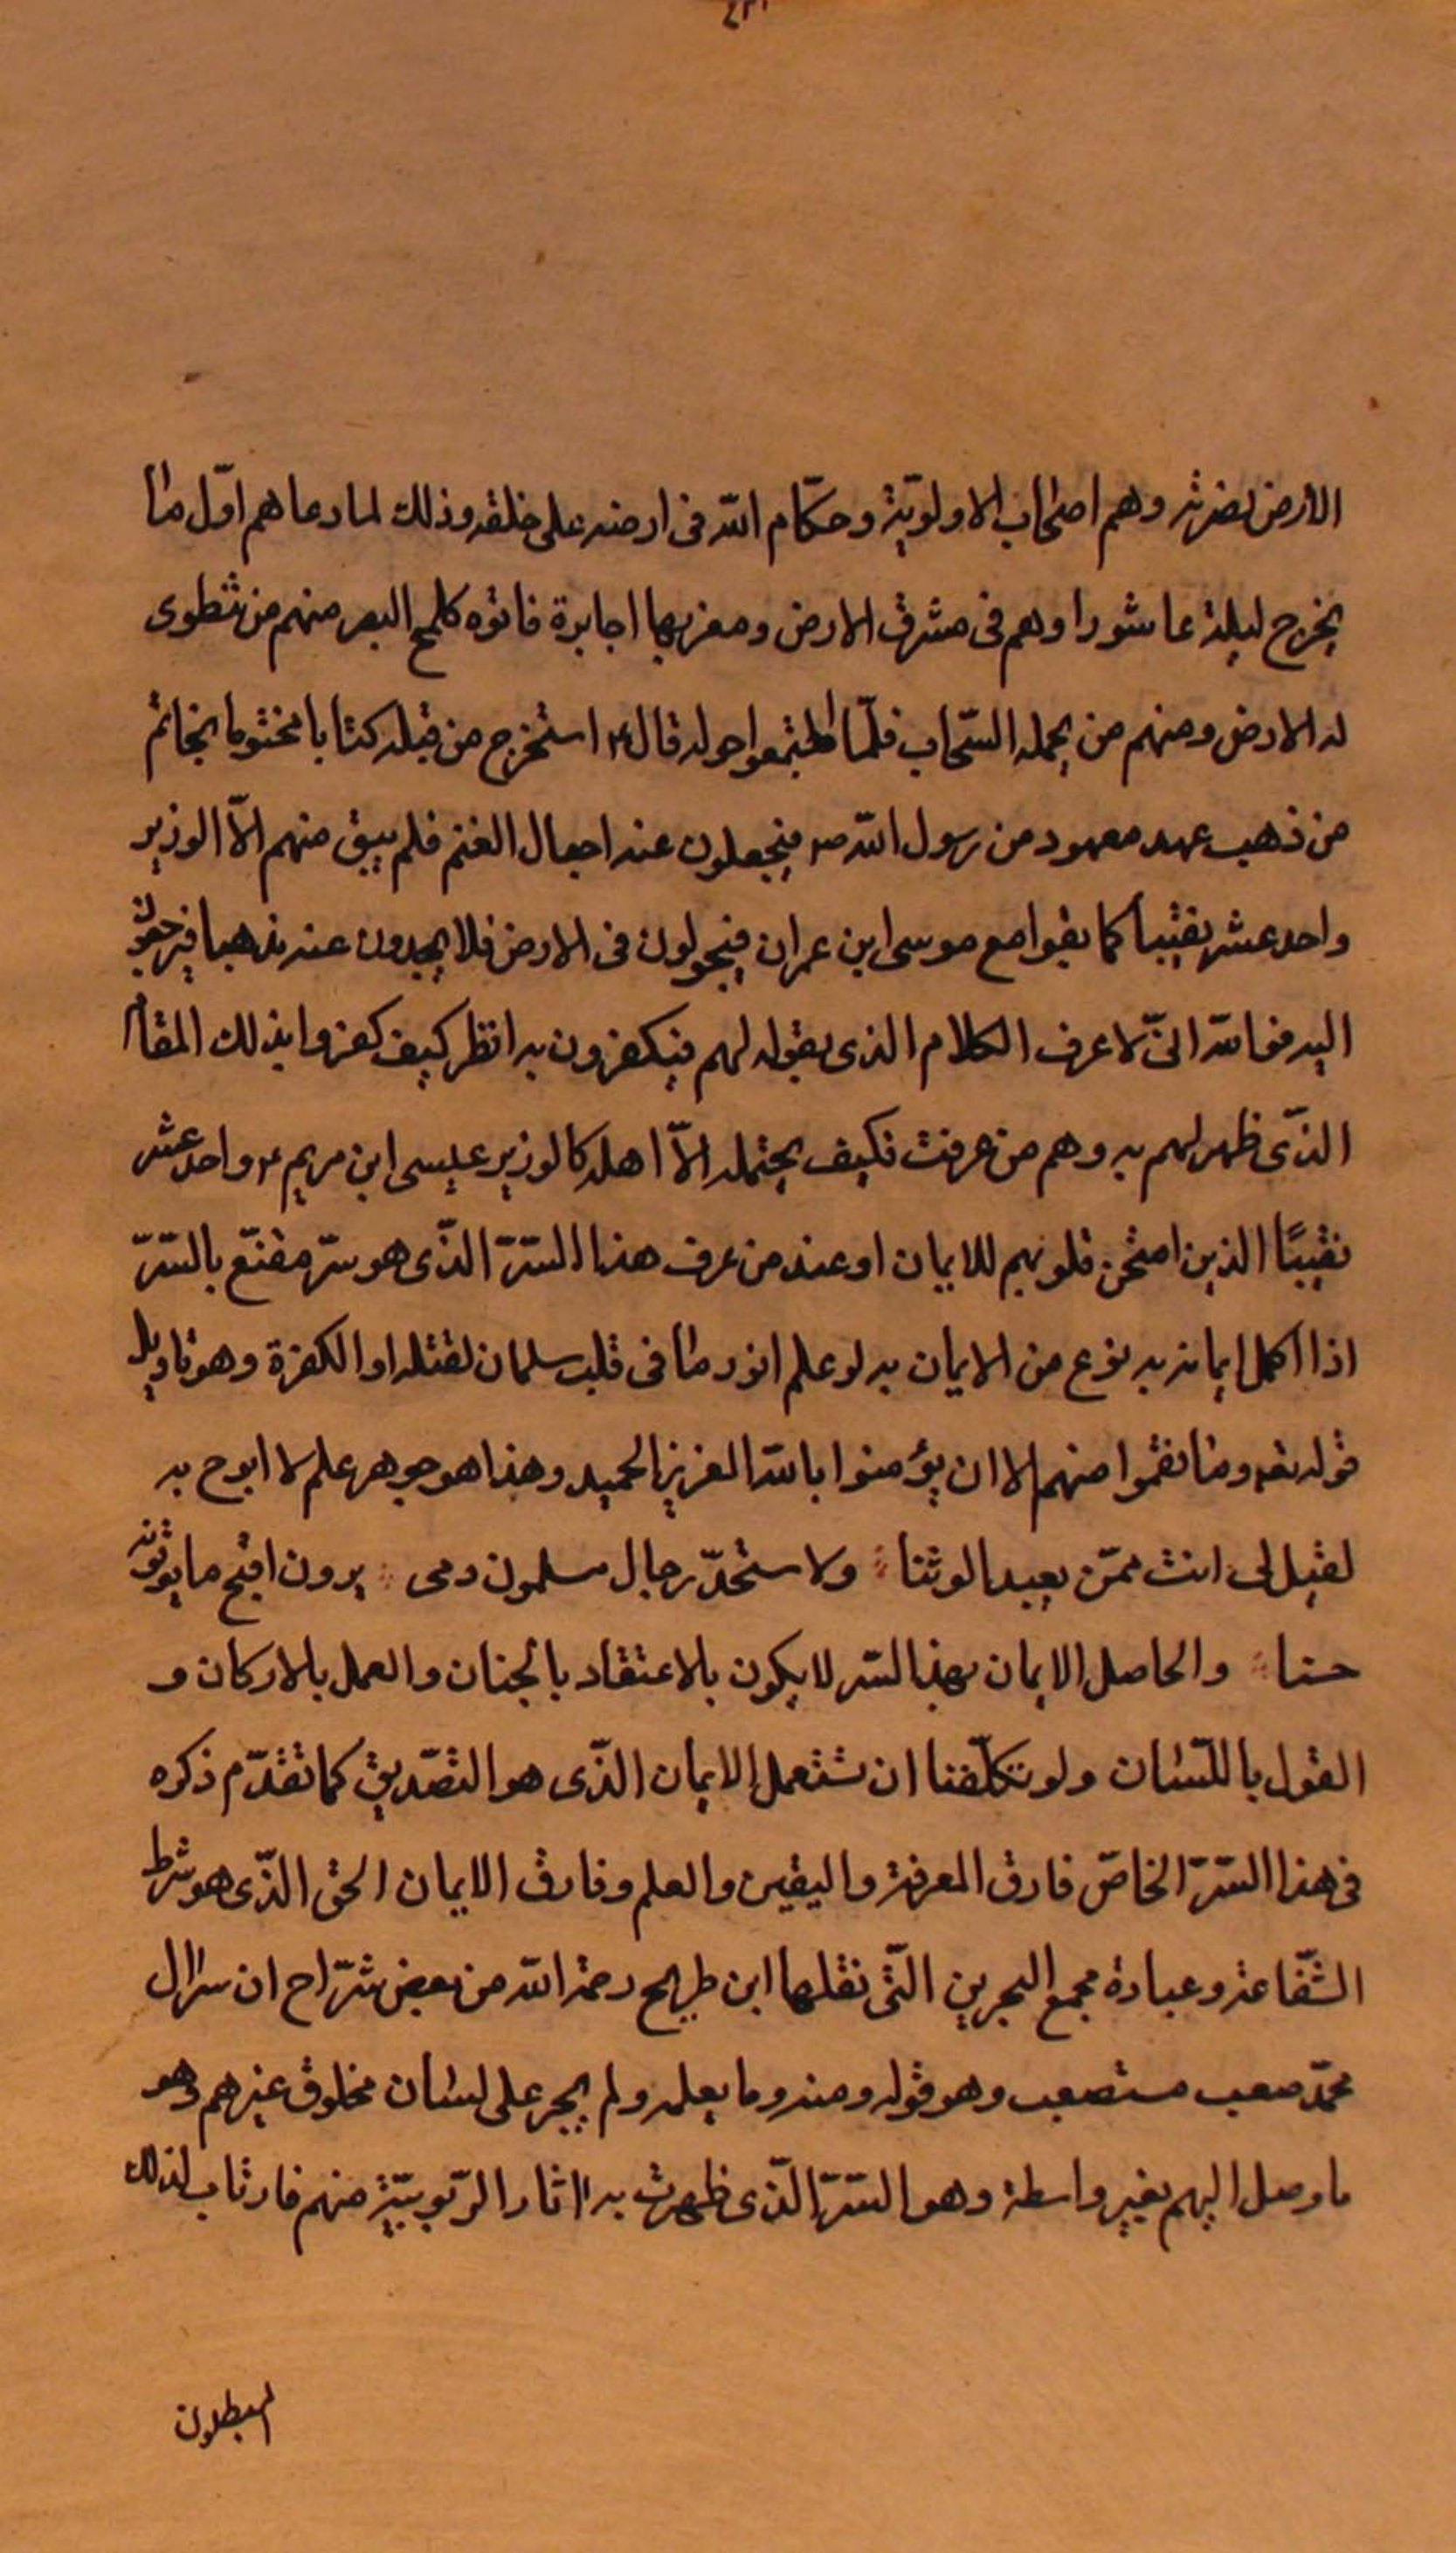 الارض لضرته وهم اصحاب الاولويّة وحكّام الله فى ارضه على خلقه وذلك لما دعاهم اوّل ما
يخرج ليلة عاشورا وهم فى مشرق الارض ومغربها اجابرة فاتوه كلمح البصر منهم من تطوى
له الارض ومنهم من يحمله السّحاب فلمّا اجتمعوا حوله قال ع استخرج من قبله كتابا مختوما بخاتم
من ذهب عهد معهود من رسول الله ص فيجعلون عنه اجعال الغنم فلم يبق منهم الّا الوزير
واحد عشر نقيبا كما بقوا مع موسى ابن عمران فيجولون فى الارض فلا يجدون عنه مذهبا فيرجعون
اليه فوالله انّى لاعرف الكلام الذى يقوله لهم فيكفرون به انظر كيف كفروا بذلك المقام
الذّى ظهر لهم به وهم من عرفت فكيف يحتمله الّا اهله كالوزير عيسى ابن مريم ع واحد عشر
نقيبًا الذين امتحن قلوبهم للايمان او عند من عرف هذا السّرّ الذّى هو سرّ مقنّع بالسّرّ
اذا اكمل ايمانه به نوع من الايمان به لو علم ابوذر ما فى قلب سلمان لقتله او الكفره وهو تاويل
قوله تعه وما نقموا منهم الا ان يؤمنوا بالله العزيز الحميد وهذا هو جوهر علم لا ابوح به
لقيل لى انت ممّن يعبد الوثنا ولاستحلّ رجال مسلمون دمى يرون اقبح ما يوتونه
حسنا والحاصل الايمان بهذا السّر لا يكون بالاعتقاد بالجنان والعمل بالاركان و
القول باللّسان ولو تكلّفنا ان نستعمل الايمان الذّى هو التصّديق كما تقدّم ذكره
فى هذا السّرّ الخاصّ فارق المعرفة واليقين والعلم وفارق الايمان الحق الذّى هو شرط
الشّفاعة وعبارة مجمع البحرين التّى نقلها ابن طريح رحمة الله من بعض شرّاح ان سر ال
محمّد صعب مستصعب وهو قوله ومنه وما يعلمه ولم يجر على لسان مخلوق غيرهم وهو
ما وصل اليهم بغير واسطة وهو السّرّ الذّى ظهرت به اثار الرّبوبيّة منهم فارتاب لذلك
المبطلون